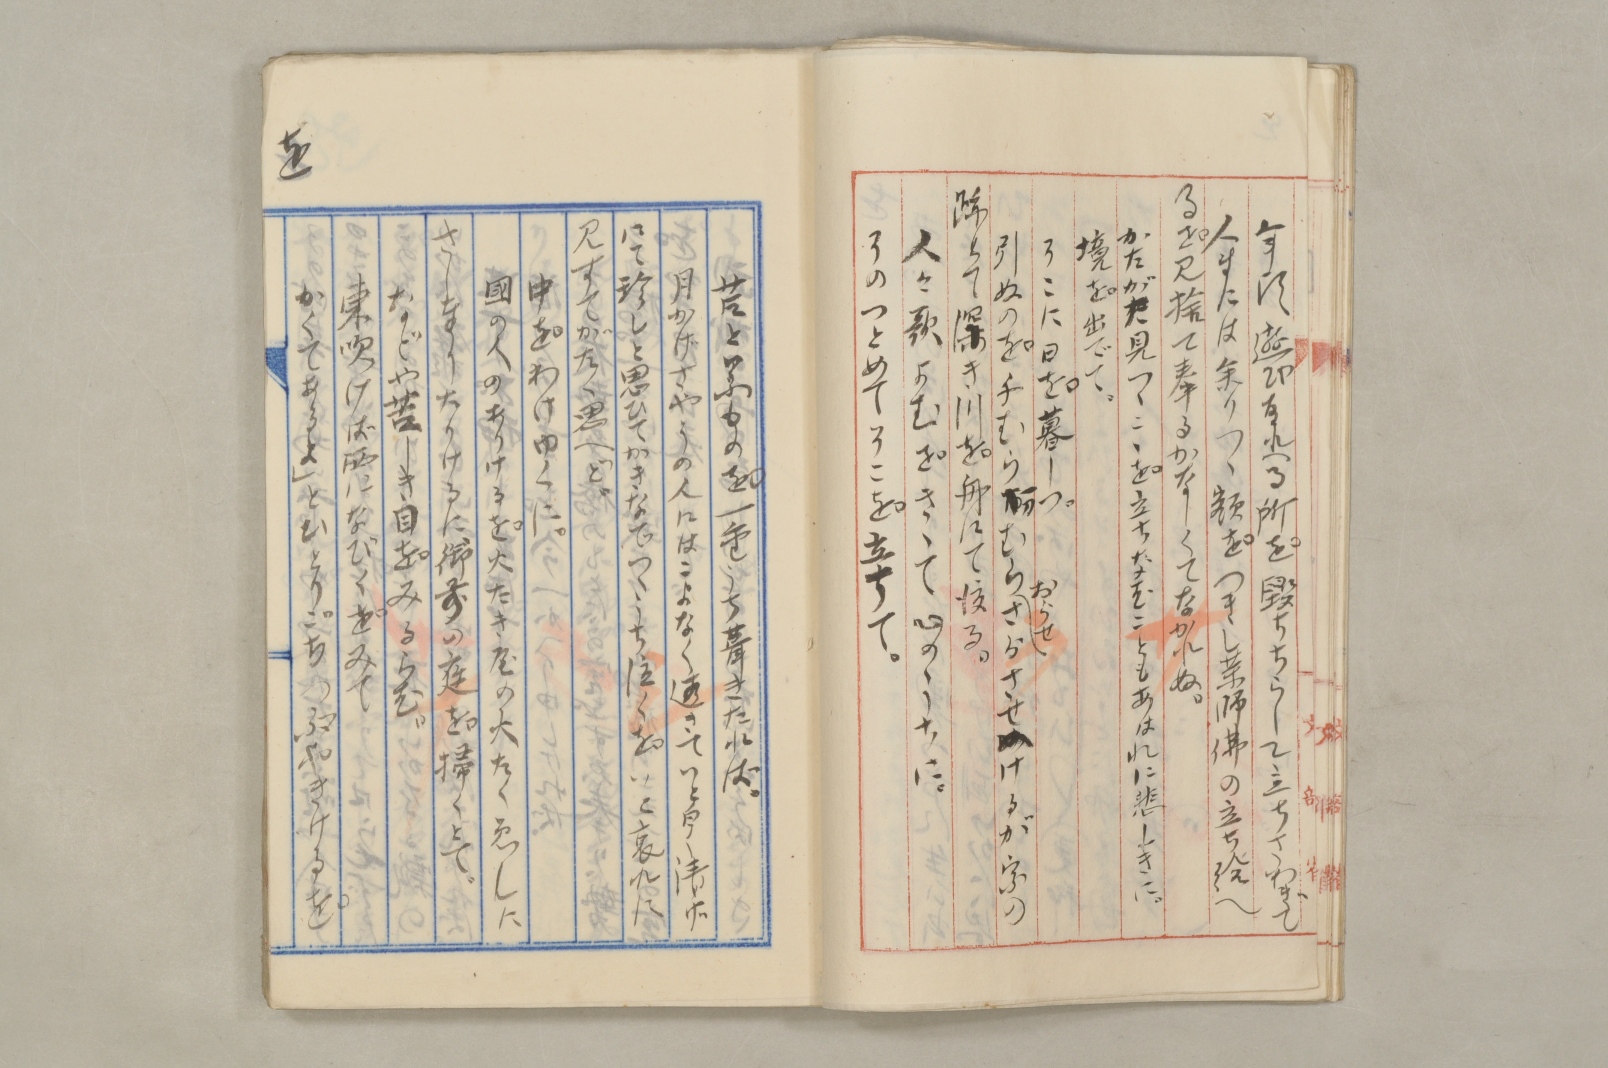 年頃遊び馴れつる所を毀ちちらして立ちさわぎて
人まには参りつゝ額をつきし薬師佛の立ち給へ
るを見捨て奉るかなしくてなかれぬ。
かたがた見つゝこゝを立ちなむこともあはれに悲しきに。
境を出でて。
そこに日を暮しつ。
引ぬのを千むら萬むらおらせさらさせけるが家の
跡とて深き川を舟にて渡る。
人々歌よむをきゝて心のうちに。
そのつとめてそこを立ちて。
を
苫と云ふものを一重うち葺きたれば。
月かげさやうの人にはこよなく過きていと白く清げ
にて珍しと思ひてかきなでつゝうち泣くをいと哀れに
見すてがたく思へど。
中をわけゆくに。
國の人のありけるを火たき屋の火たく衛しに
さしたりけるに御前の庭を掃くとて。
などや苦しき目をみるらむ。
東吹けば西になびくをみて
かくてあるよ」とひとりごちつぶやきけるを。